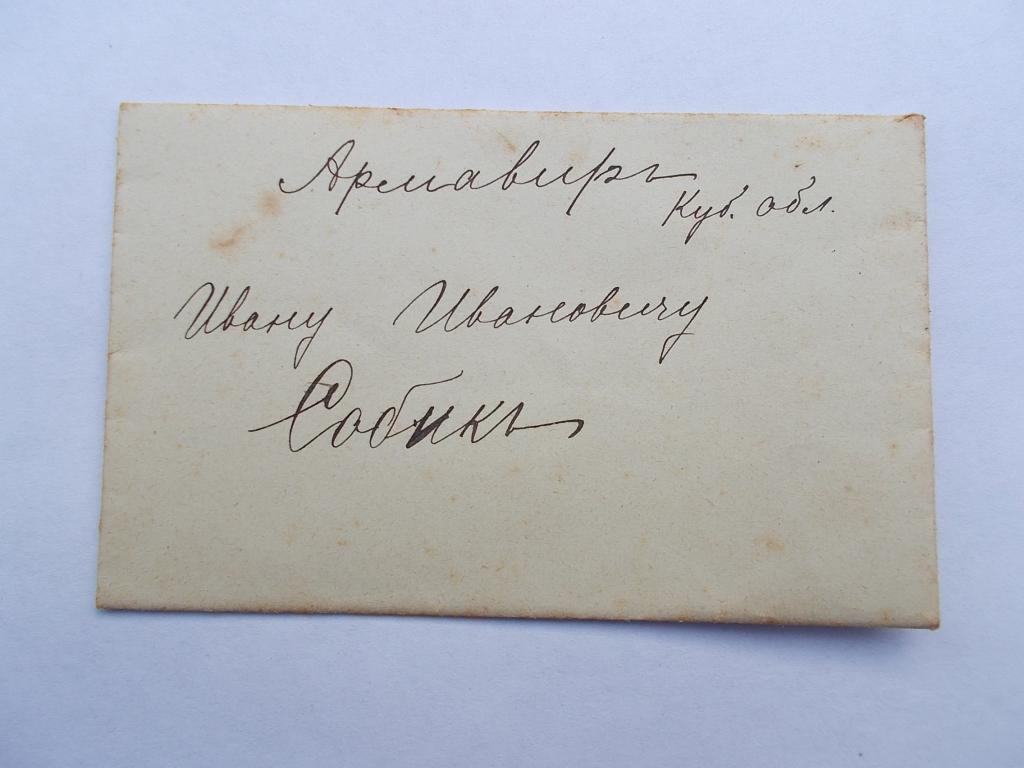 Армавиръ
Куб. обл.
Ивану Ивановичу
Собикъ